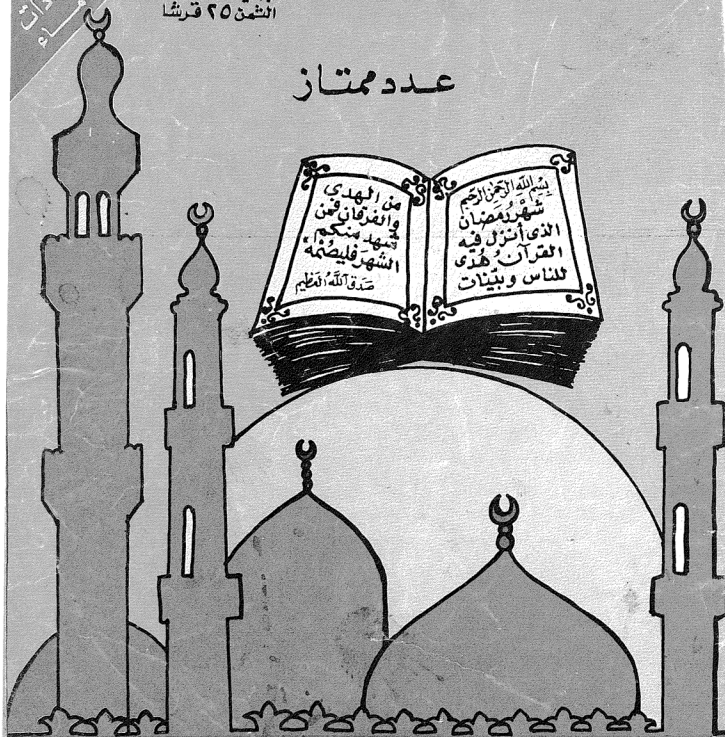 الثمن ٢٥ قرشا
عدد ممتاز
بسم الله الرحمن الرحيم
شهر رمضان
الذى أنزل فيه
القرآن هُدًى
للناس وبيّنات
من الهدي
والفرقان فمن
شهد منكم
الشهرَ فليصُمْهُ
صدق الله العظيم